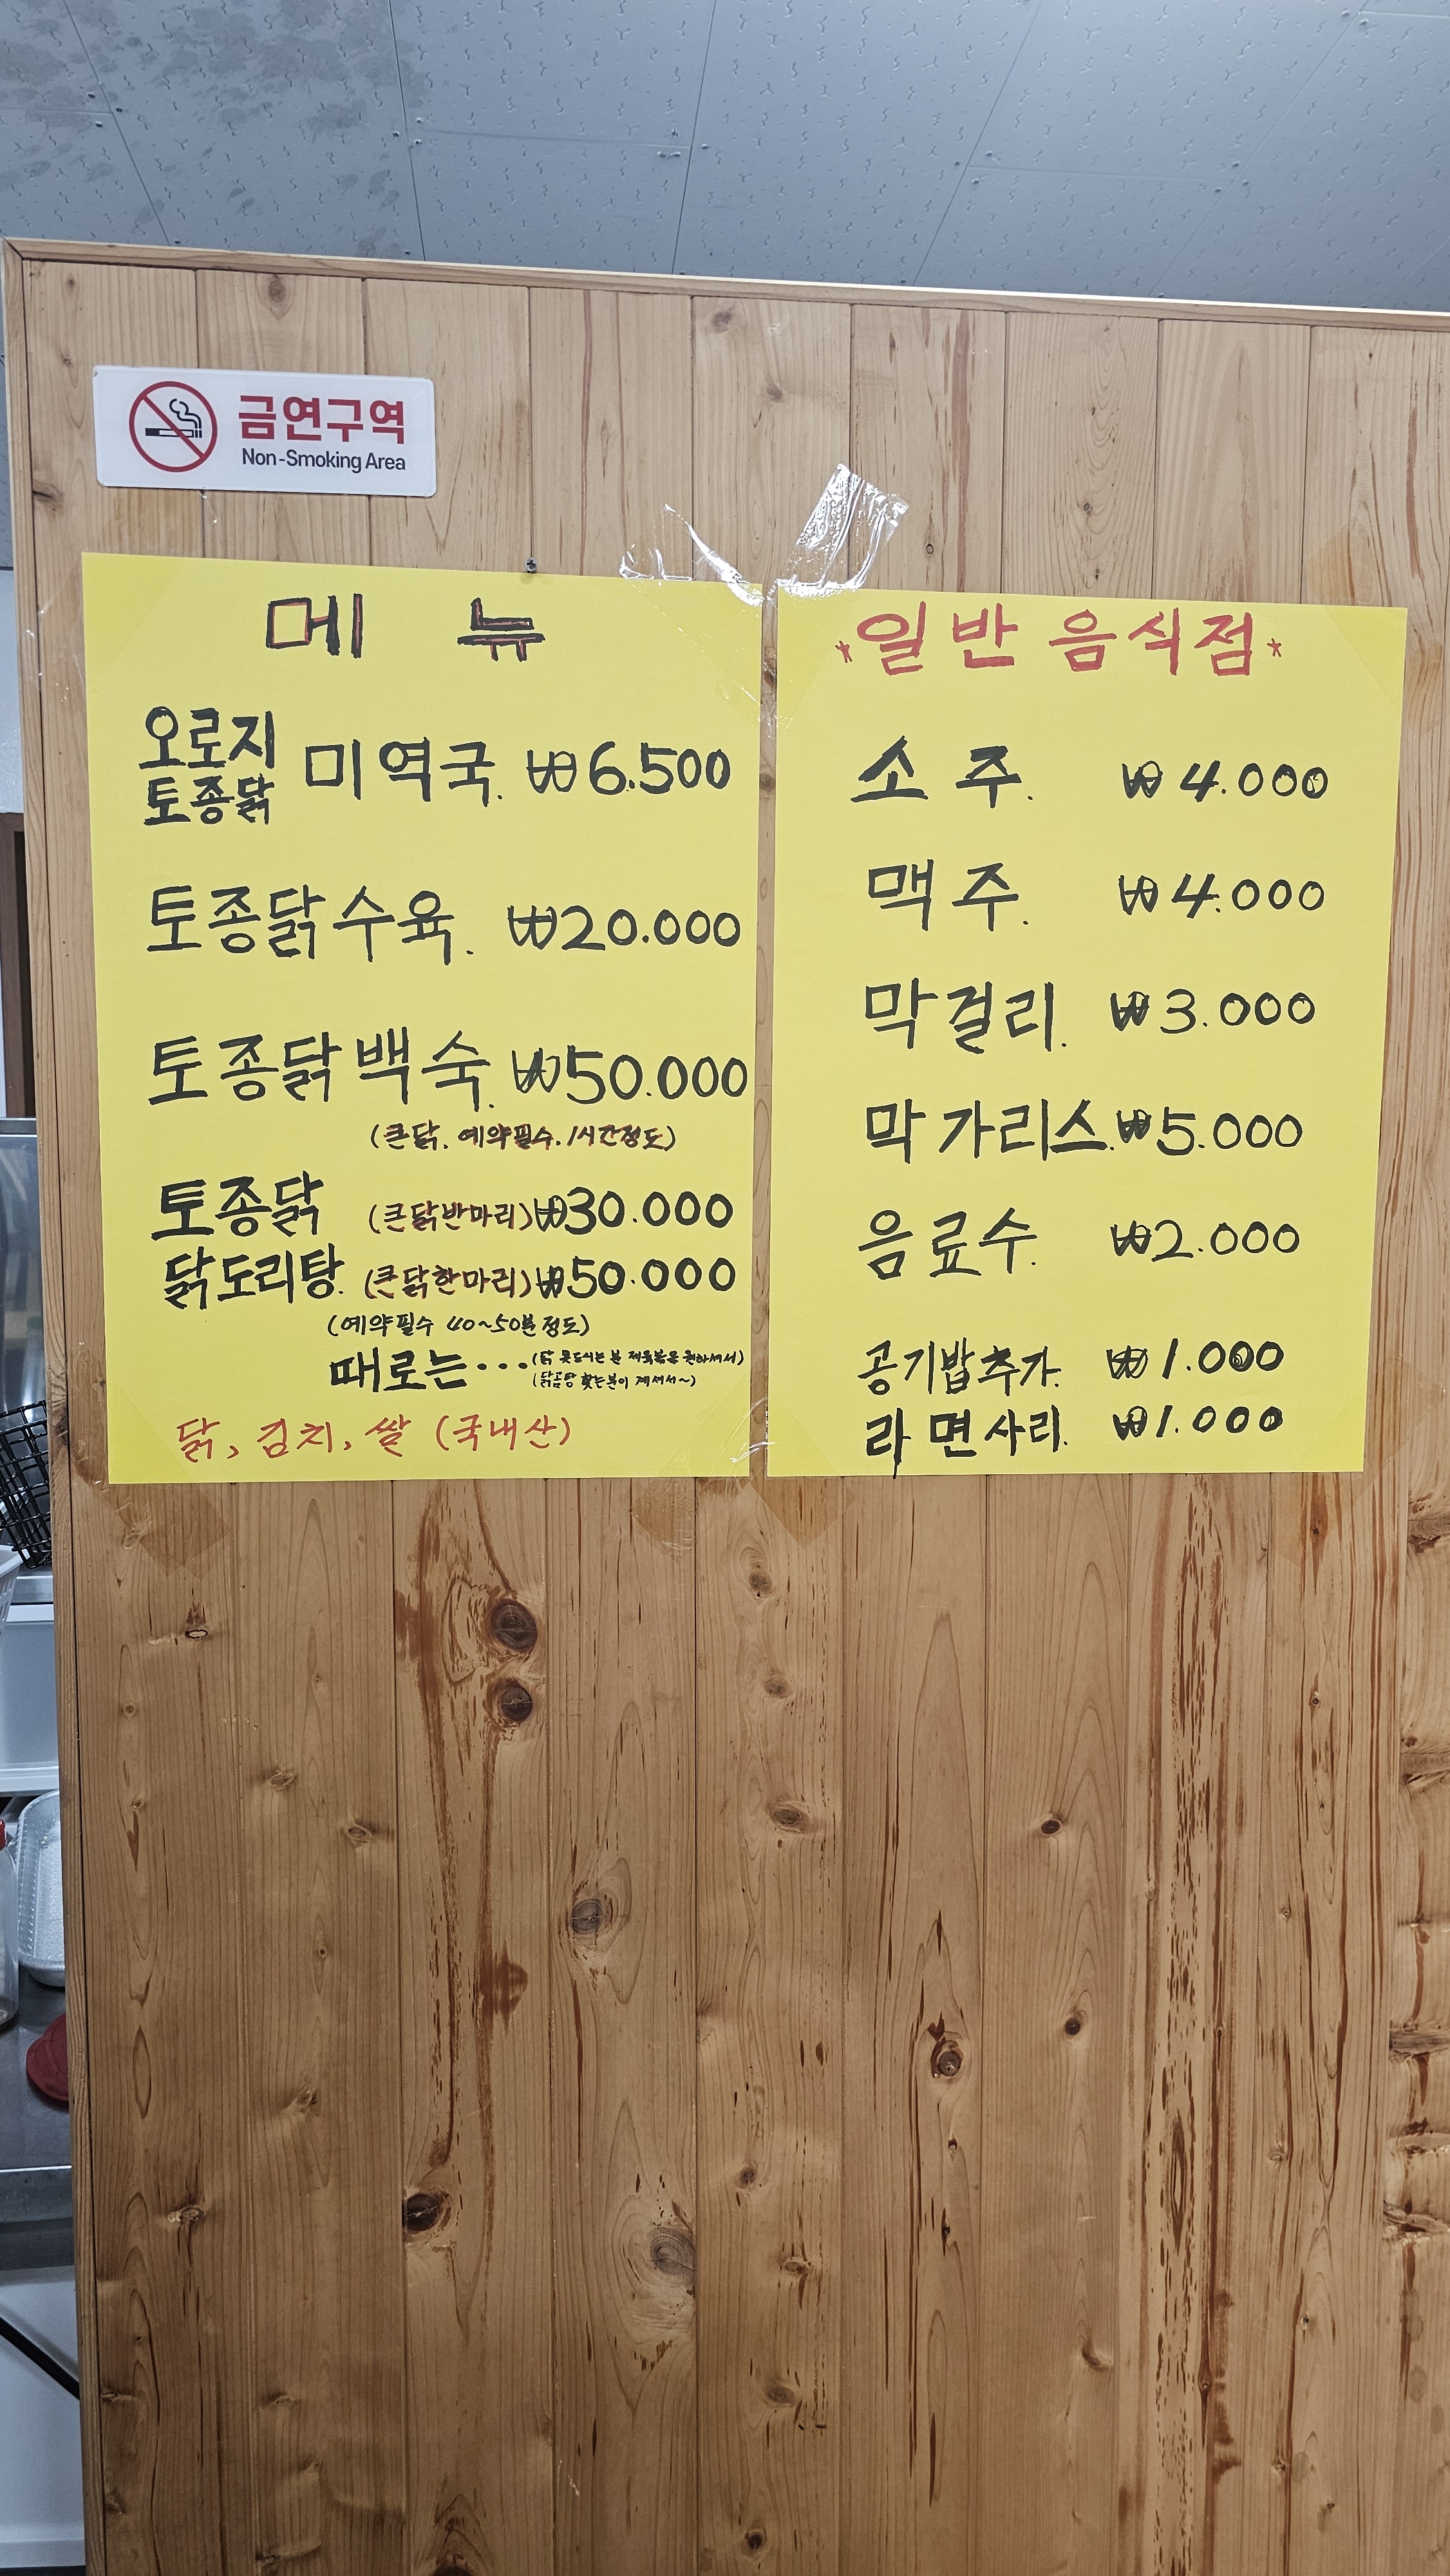 금연구역
Non-Smoking Area
메 뉴
오로지
토종닭 미역국. ₩6.500
토종닭수육. ₩20.000
토종닭백숙. ₩50.000
(큰닭. 예약필수. 1시간정도)
토종닭 (큰닭반마리)₩30.000
닭도리탕. (큰닭한마리)₩50.000
(예약필수 40~50분정도)
때로는... (닭 못드시는 분 제육볶음 원하셔서)
(닭곰탕 찾는분이 계셔서~)
닭, 김치, 쌀 (국내산)
*일반음식점*
소주. ₩4.000
맥주. ₩4.000
막걸리. ₩3.000
막가리스.₩5.000
음료수. ₩2.000
공기밥추가. ₩1.000
라면사리. ₩1.000